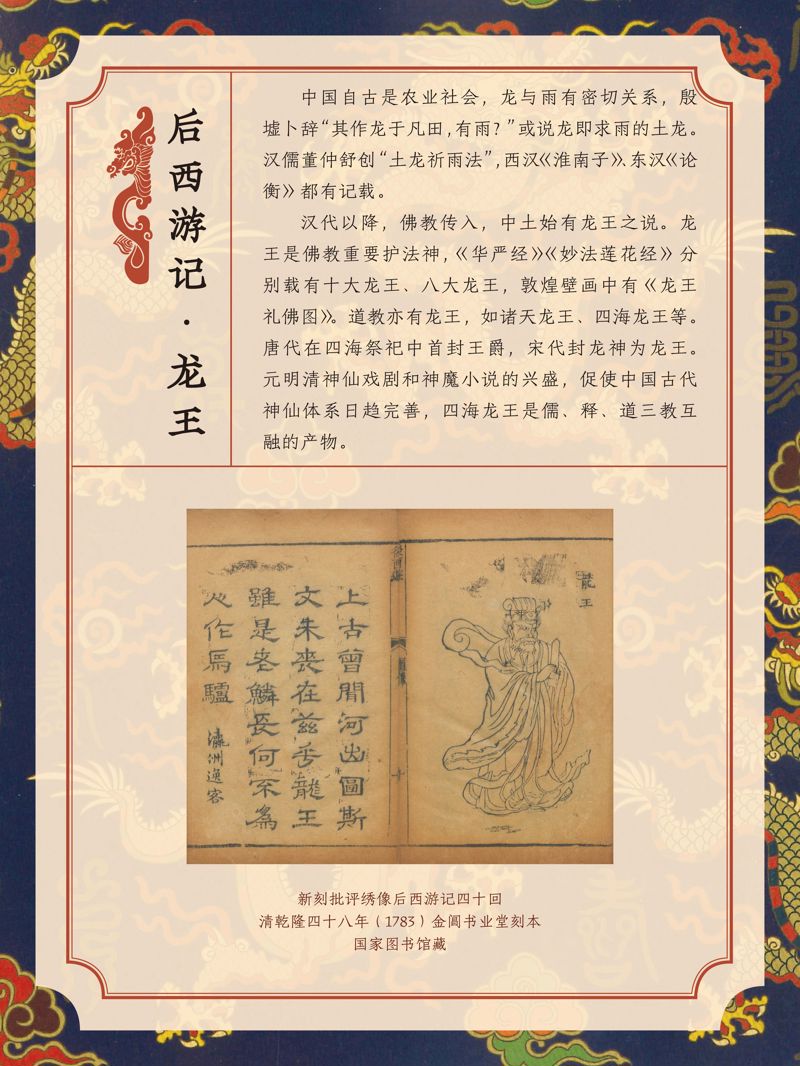 后西游记·龙王
中国自古是农业社会，龙与雨有密切关系，殷
墟卜辞“其作龙于凡田，有雨？”或说龙即求雨的土龙。
汉儒董仲舒创“土龙祈雨法”，西汉《淮南子》、东汉《论
衡》都有记载。
汉代以降，佛教传入，中土始有龙王之说。龙
王是佛教重要护法神，《华严经》《妙法莲花经》分
别载有十大龙王、八大龙王，敦煌壁画中有《龙王
礼佛图》。道教亦有龙王，如诸天龙王、四海龙王等。
唐代在四海祭祀中首封王爵，宋代封龙神为龙王。
元明清神仙戏剧和神魔小说的兴盛，促使中国古代
神仙体系日趋完善，四海龙王是儒、释、道三教互
融的产物。
龍王
後西遊
上古曾聞河出圖斯
文未喪在茲乎龍王
雖是老鱗長何不為
作馬驢
瀛洲逸客
新刻批评绣像后西游记四十回
清乾隆四十八年（1783）金阊书业堂刻本
国家图书馆藏